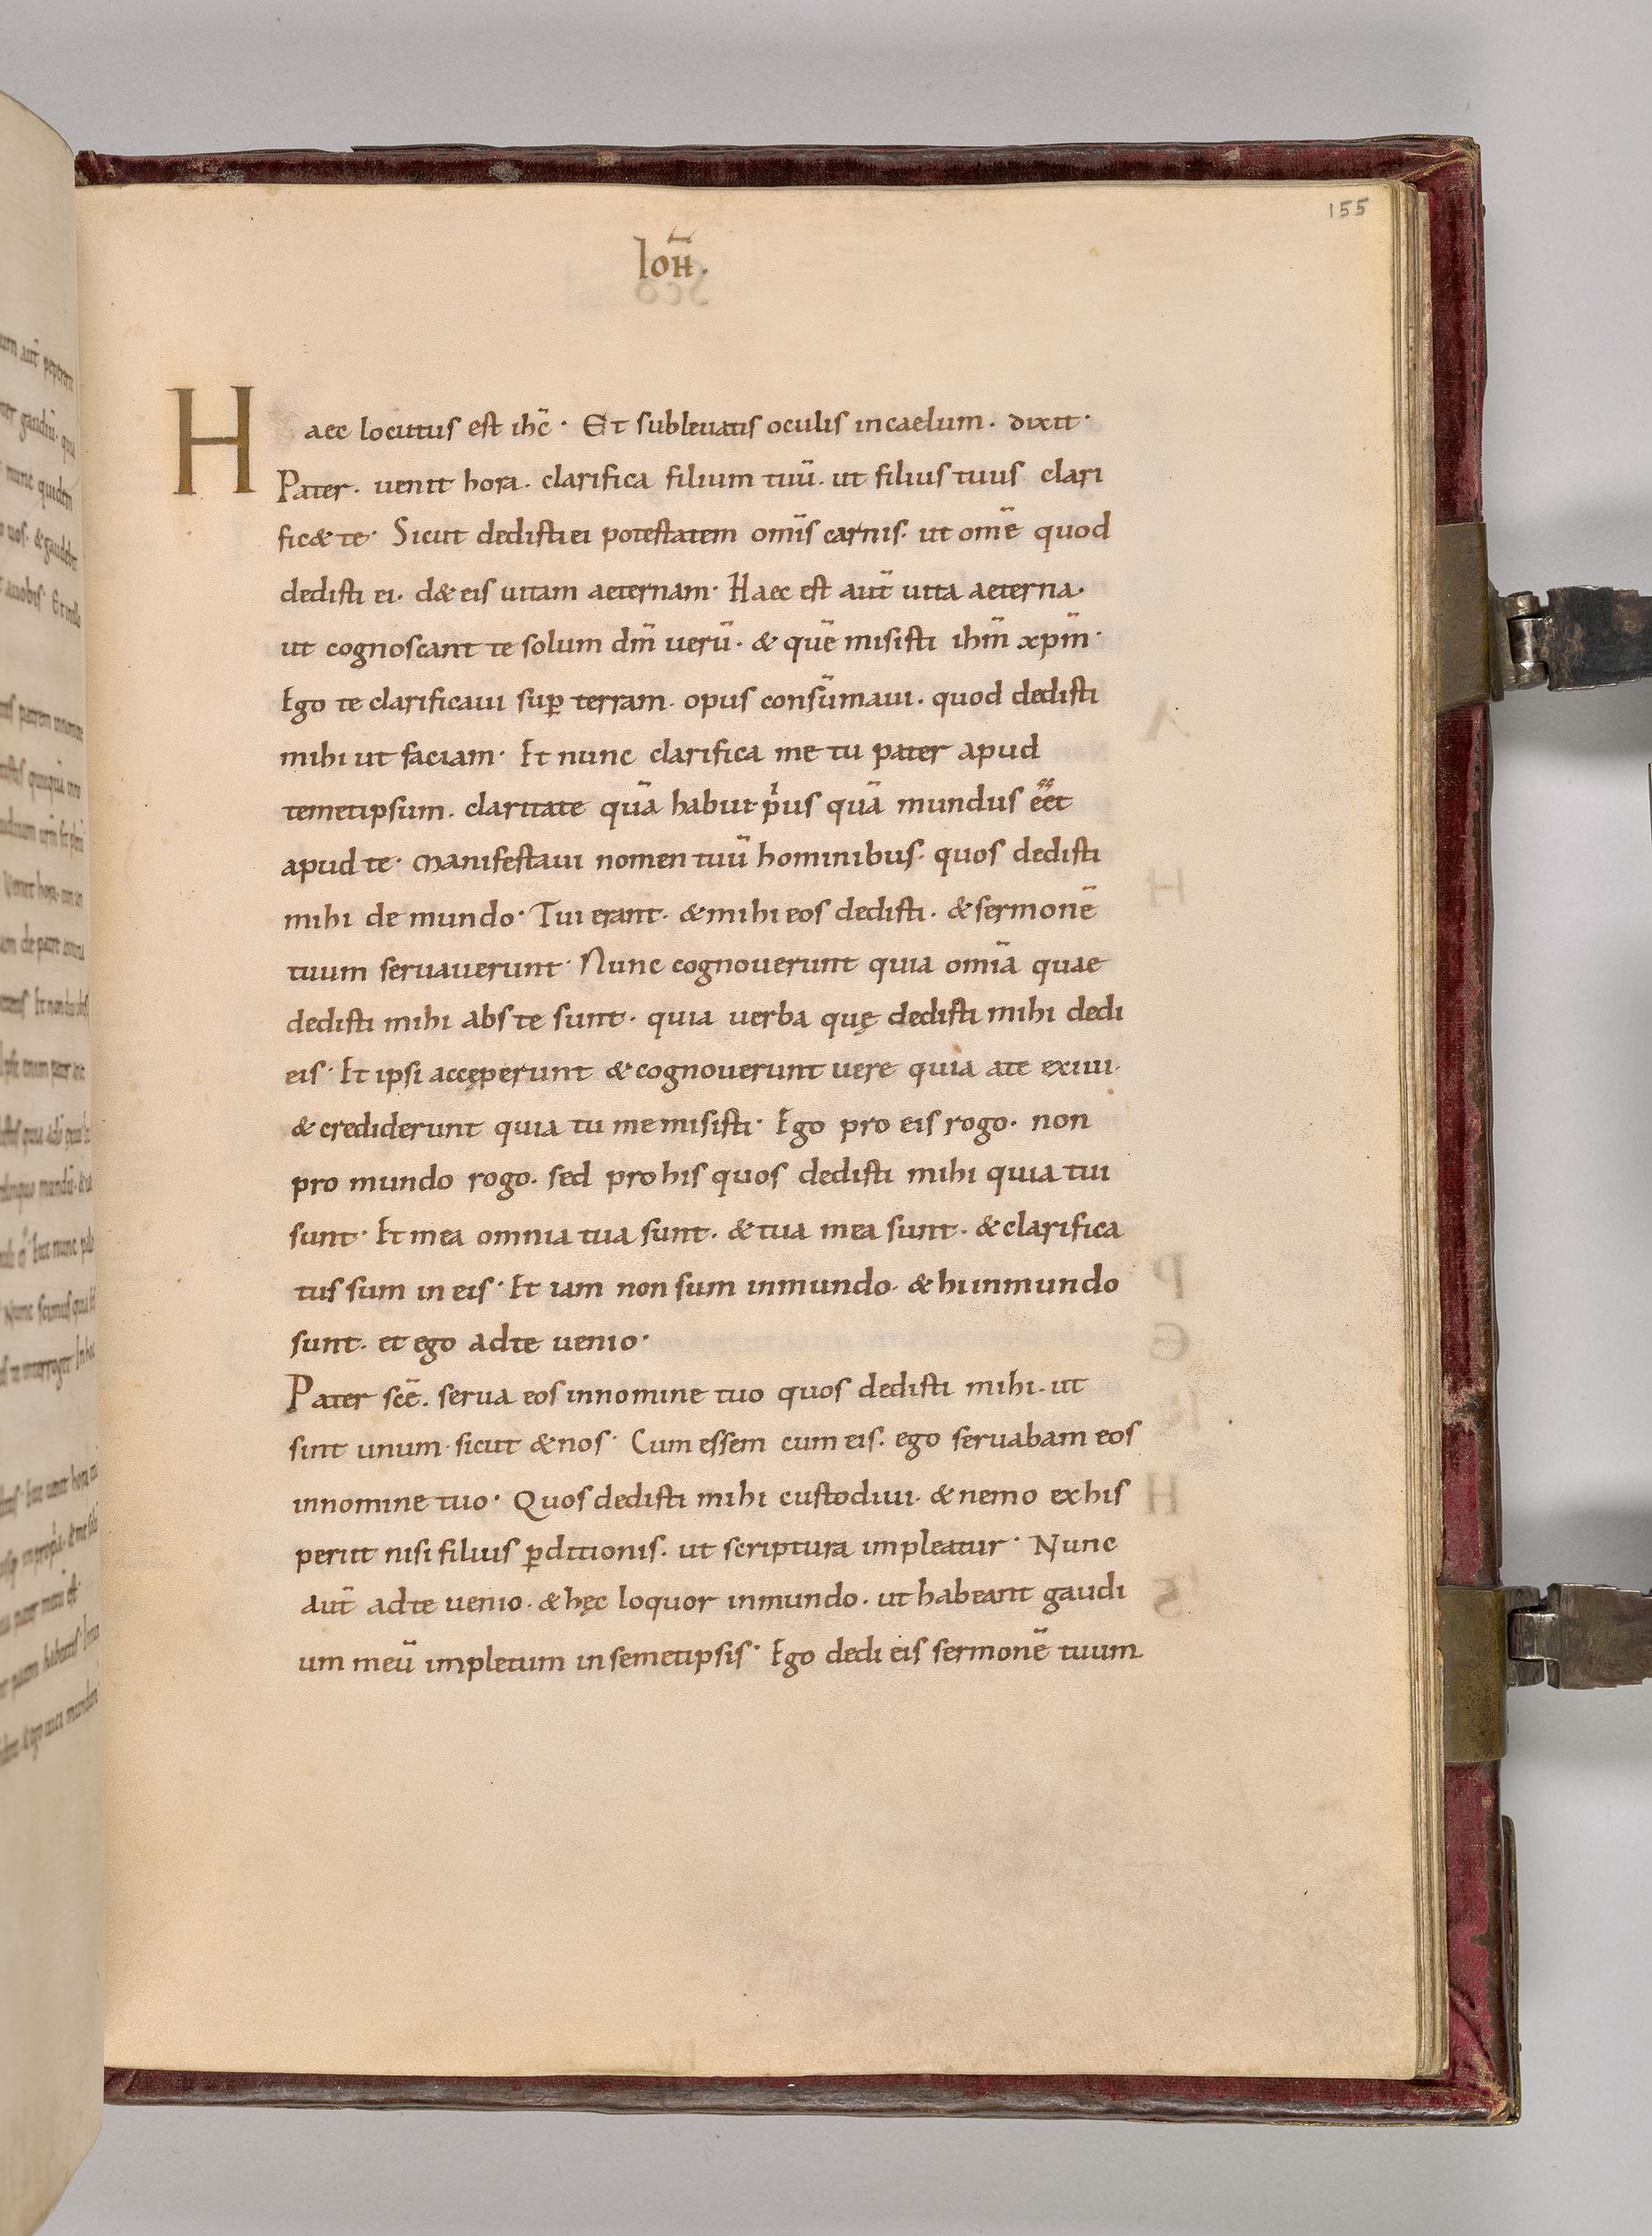 155
Ioħ̄.
Haec locutus est ihc̄· Et subleuatis oculis incaelum. dixit·
Pater. uenit hora. clarifica filium tuū. ut filius tuus clari
fic& te· Sicut dedisti ei potestatem omīs carnis. ut omē quod
dedisti ei. d& eis uitam aeternam· Haec est aut̄ uita aeterna.
ut cognoscant te solum dm̄ uerū. & quē misisti ihm̄ xpm̄·
Ego te clarificaui suꝑ terram. opus consūmaui. quod dedisti
mihi ut faciam· Et nunc clarifica me tu pater apud
temetipsum. claritate quā habui pͥus quā mundus eēt
apud te· Manifestaui nomen tuū hominibus. quos dedisti
mihi de mundo· Tui erant. & mihi eos dedisti. & sermonē
tuum seruauerunt· Nunc cognouerunt quia omīa quae
dedisti mihi abs te sunt. quia uerba quę dedisti mihi dedi
eis· Et ipsi accęperunt & cognouerunt uere quia ate exiui.
& crediderunt quia tu me misisti· Ego pro eis rogo. non
pro mundo rogo. sed pro his quos dedisti mihi quia tui
sunt· Et mea omnia tua sunt. & tua mea sunt. & clarifica
tus sum in eis· Et iam non sum inmundo. & hi inmundo
sunt. et ego adte uenio·
Pater scē. serua eos innomine tuo quos dedisti mihi. ut
sint unum. sicut & nos· Cum essem cum eis. ego seruabam eos
innomine tuo· Quos dedisti mihi custodiui. & nemo exhis
periit nisi filius ꝑditionis. ut scriptura impleatur· Nunc
aut̄ adte uenio. & hęc loquor inmundo. ut habeant gaudi
um meū impletum in semetipsis· Ego dedi eis sermonē tuum